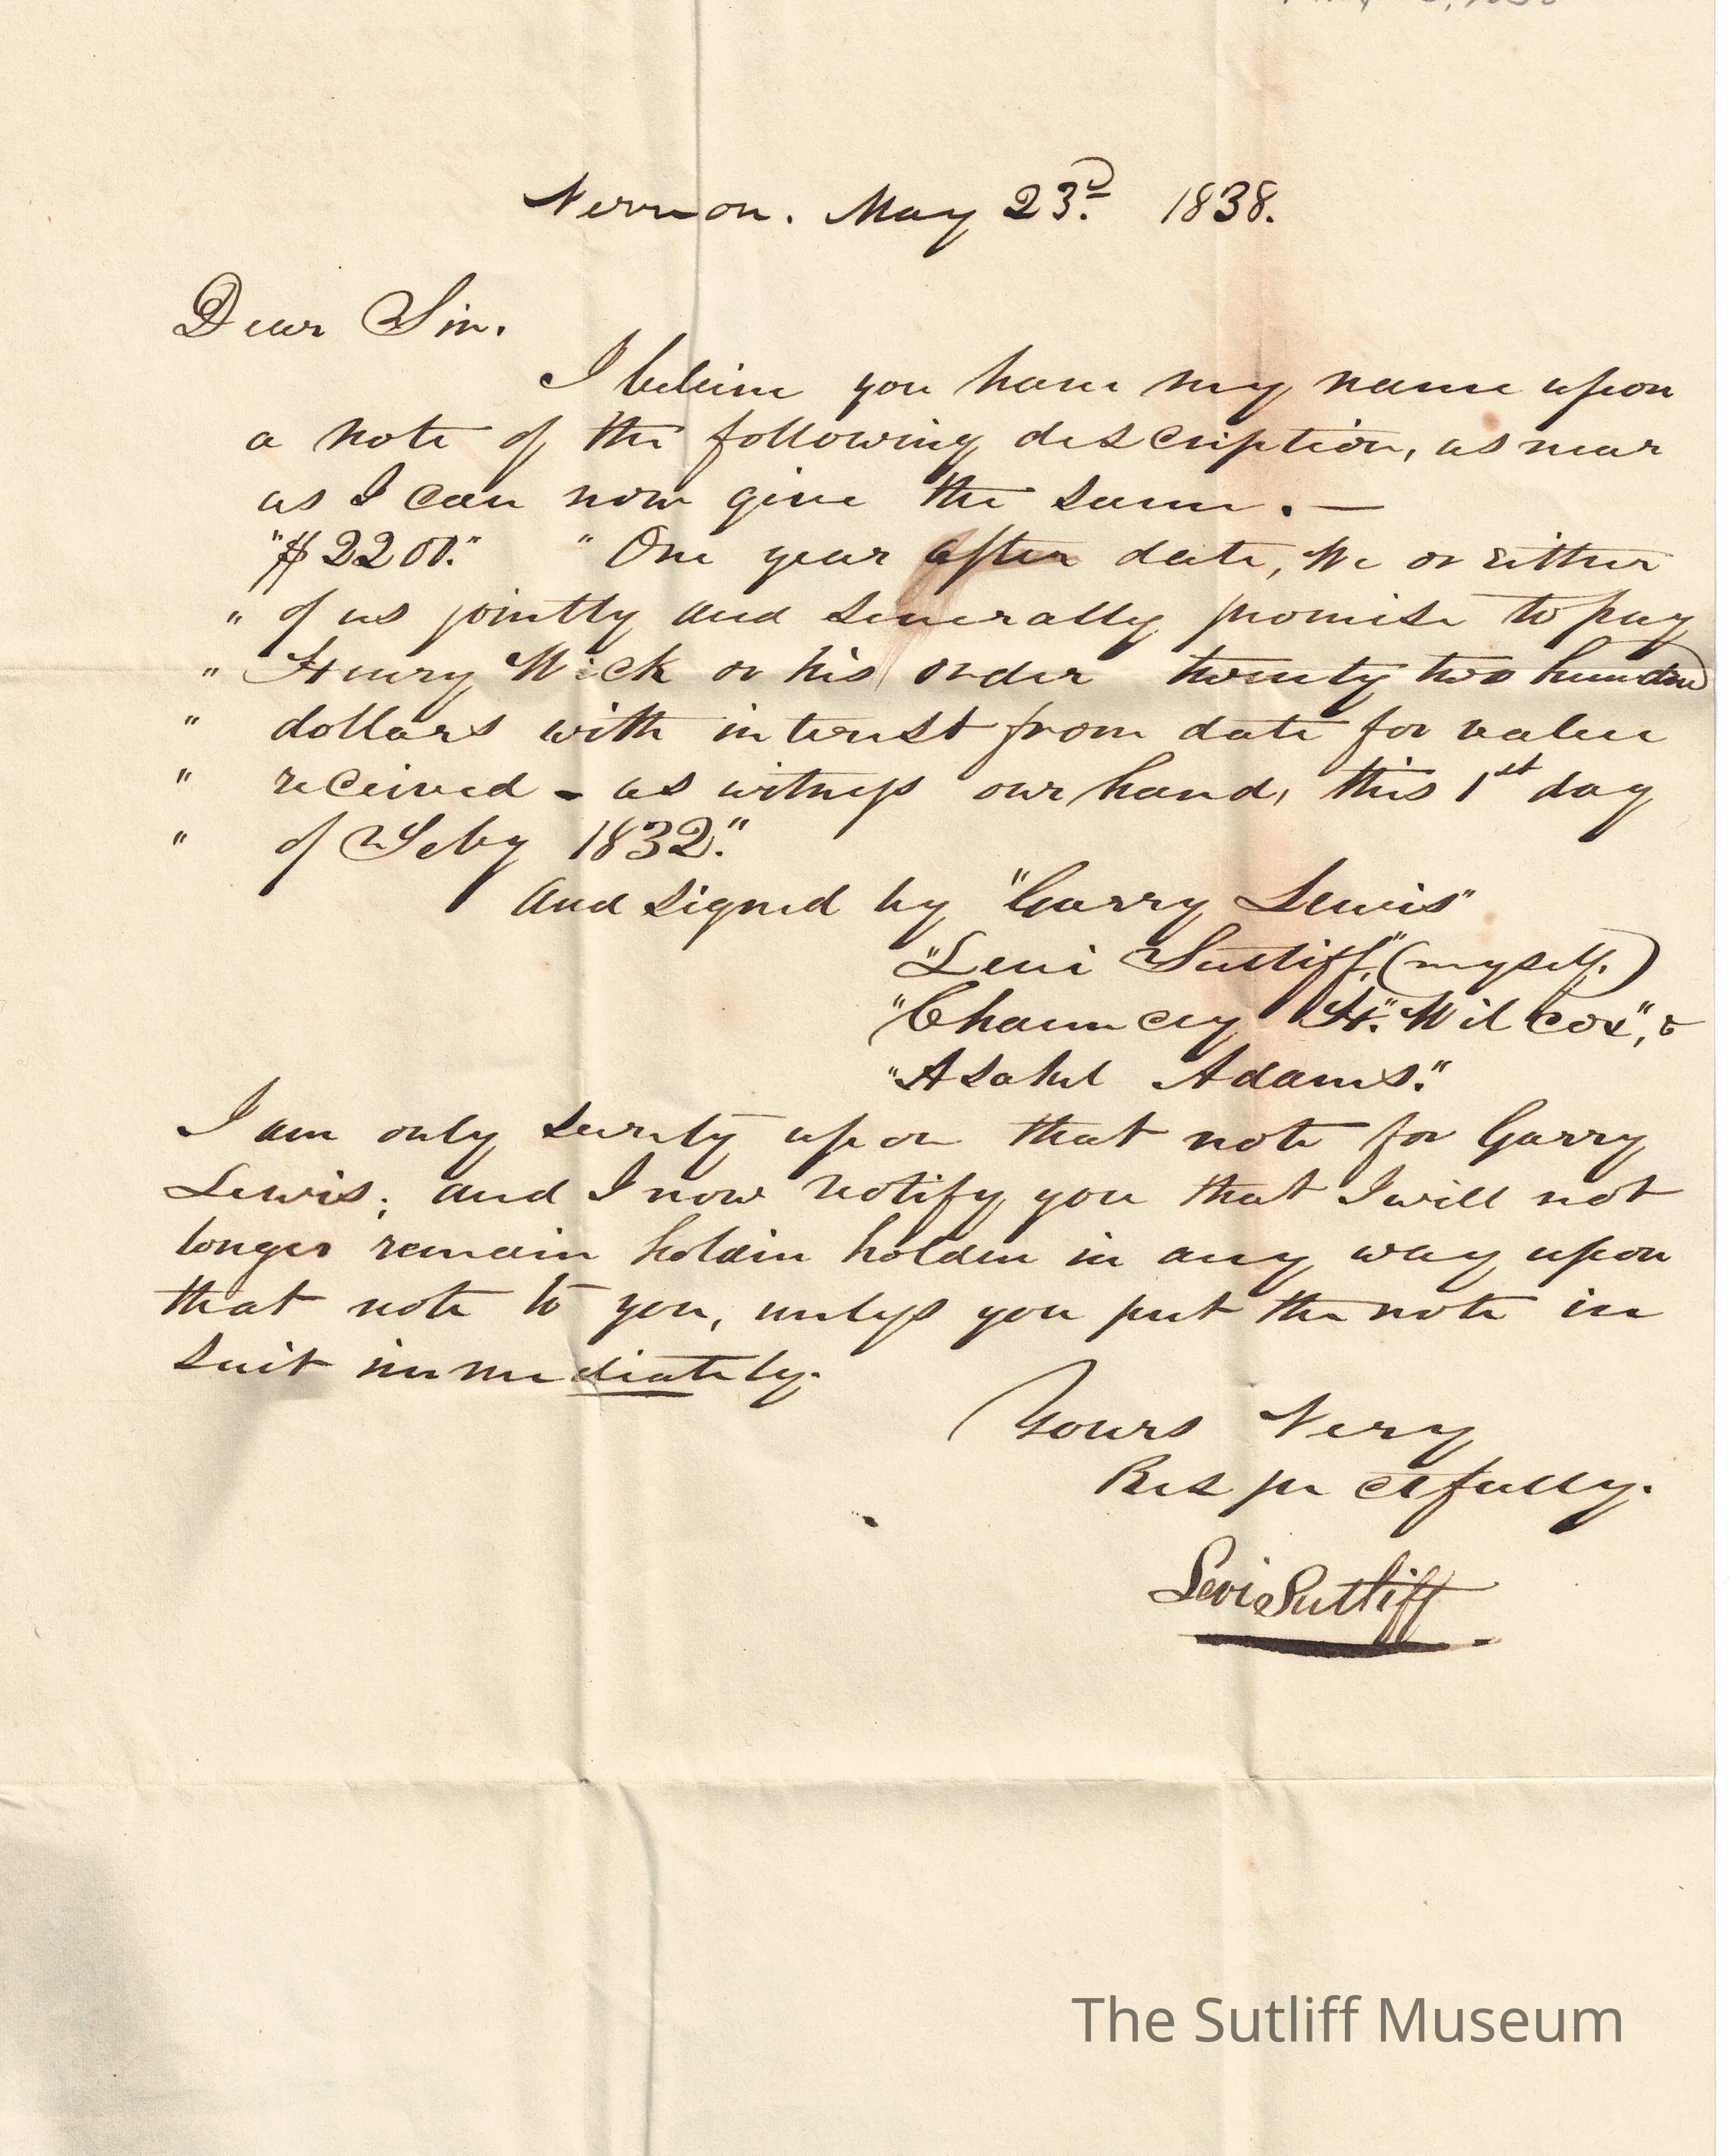 Vernon. May 23.d 1838.
Dear Sir.
I believe you have my name upon
a note of the following description, as near
as I can now give the same. —
"$2200." "One year after date, We or either
" of us jointly and severally promise to pay
" Henry Wick or his order twenty two hundred
" dollars with interest from date for value
" received - as witness our hand, this 1st day
" of Feby 1832."
And signed by "Garry Lewis"
"Levi Sutliff," (myself.)
"Chauncey H. Wilcox", &
"Asahel Adams."
I am only surity upon that note for Garry
Lewis; and I now notify you that I will not
longer remain holden holden in any way upon
that note to you, unless you put the note in
suit immediately.
Yours Very
Respectfully.
Levi Sutliff
The Sutliff Museum